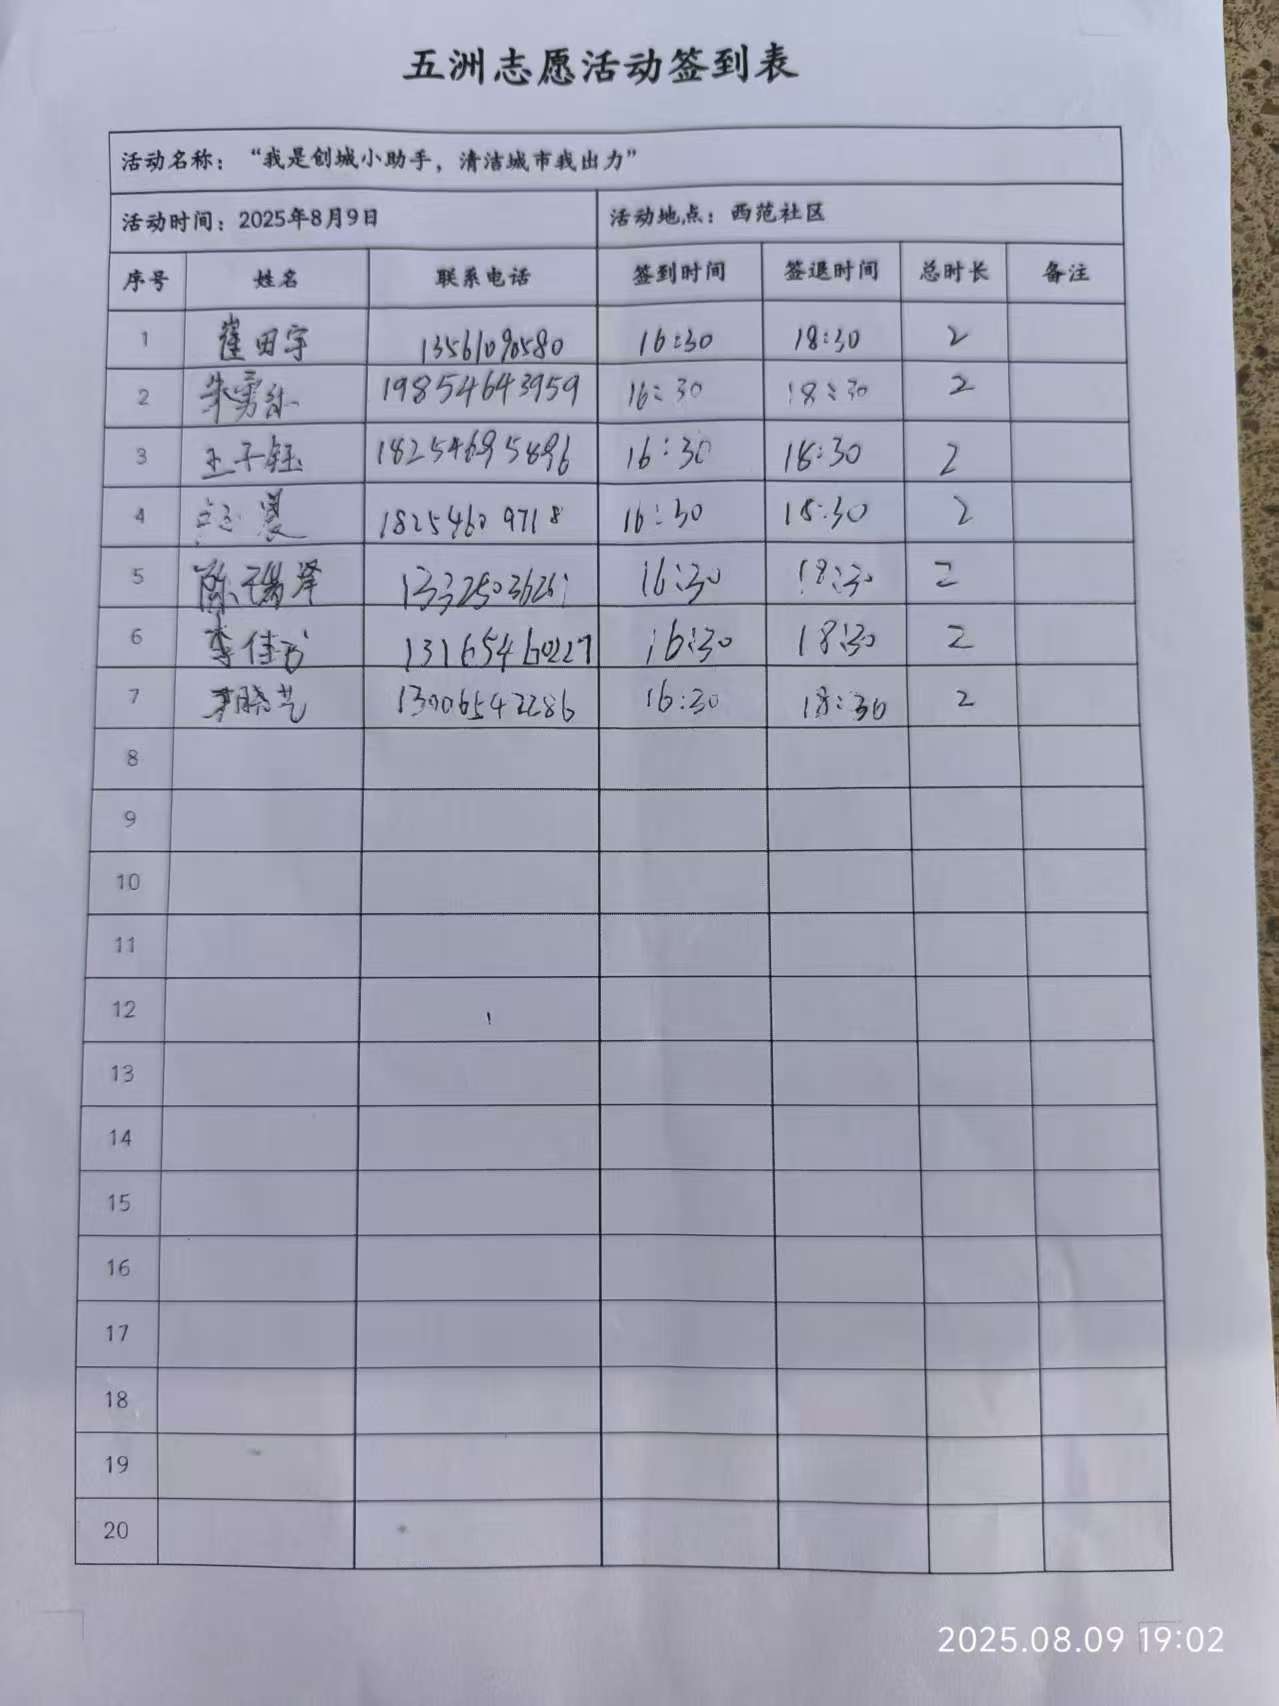 五洲志愿活动签到表
活动名称：“我是创城小助手，清洁城市我出力”
活动时间：2025年8月9日 活动地点：西范社区
序号 姓名 联系电话 签到时间 签退时间 总时长 备注
1 崔田宇 13561090580 16:30 18:30 2
2 19854643959 16:30 18:30 2
3 王子钰 18254695896 16:30 18:30 2
4 18254609718 16:30 18:30 2
5 陈 泽 16:30 18:30 2
6 李佳 13165460227 16:30 18:30 2
7 晓艺 13006542286 16:30 18:30 2
8
9
10
11
12
13
14
15
16
17
18
19
20
2025.08.09 19:02